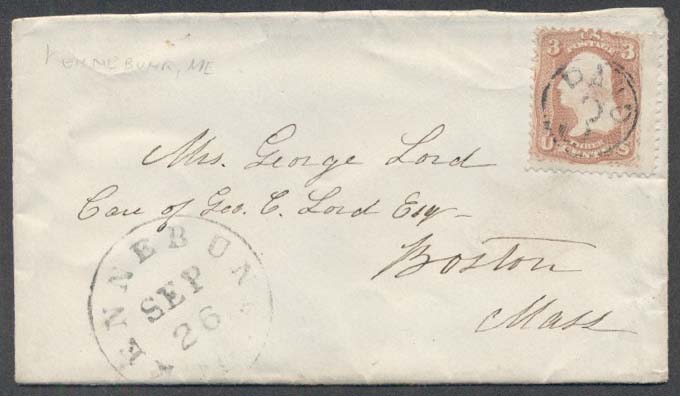 KENNEBUNK, ME
3 U.S. 3
POSTAGE
THREE
CENTS
PAID
3
Mrs. George Lord
Care of Geo. C. Lord Esq
Boston
Mass
KENNEBUNK
SEP
26